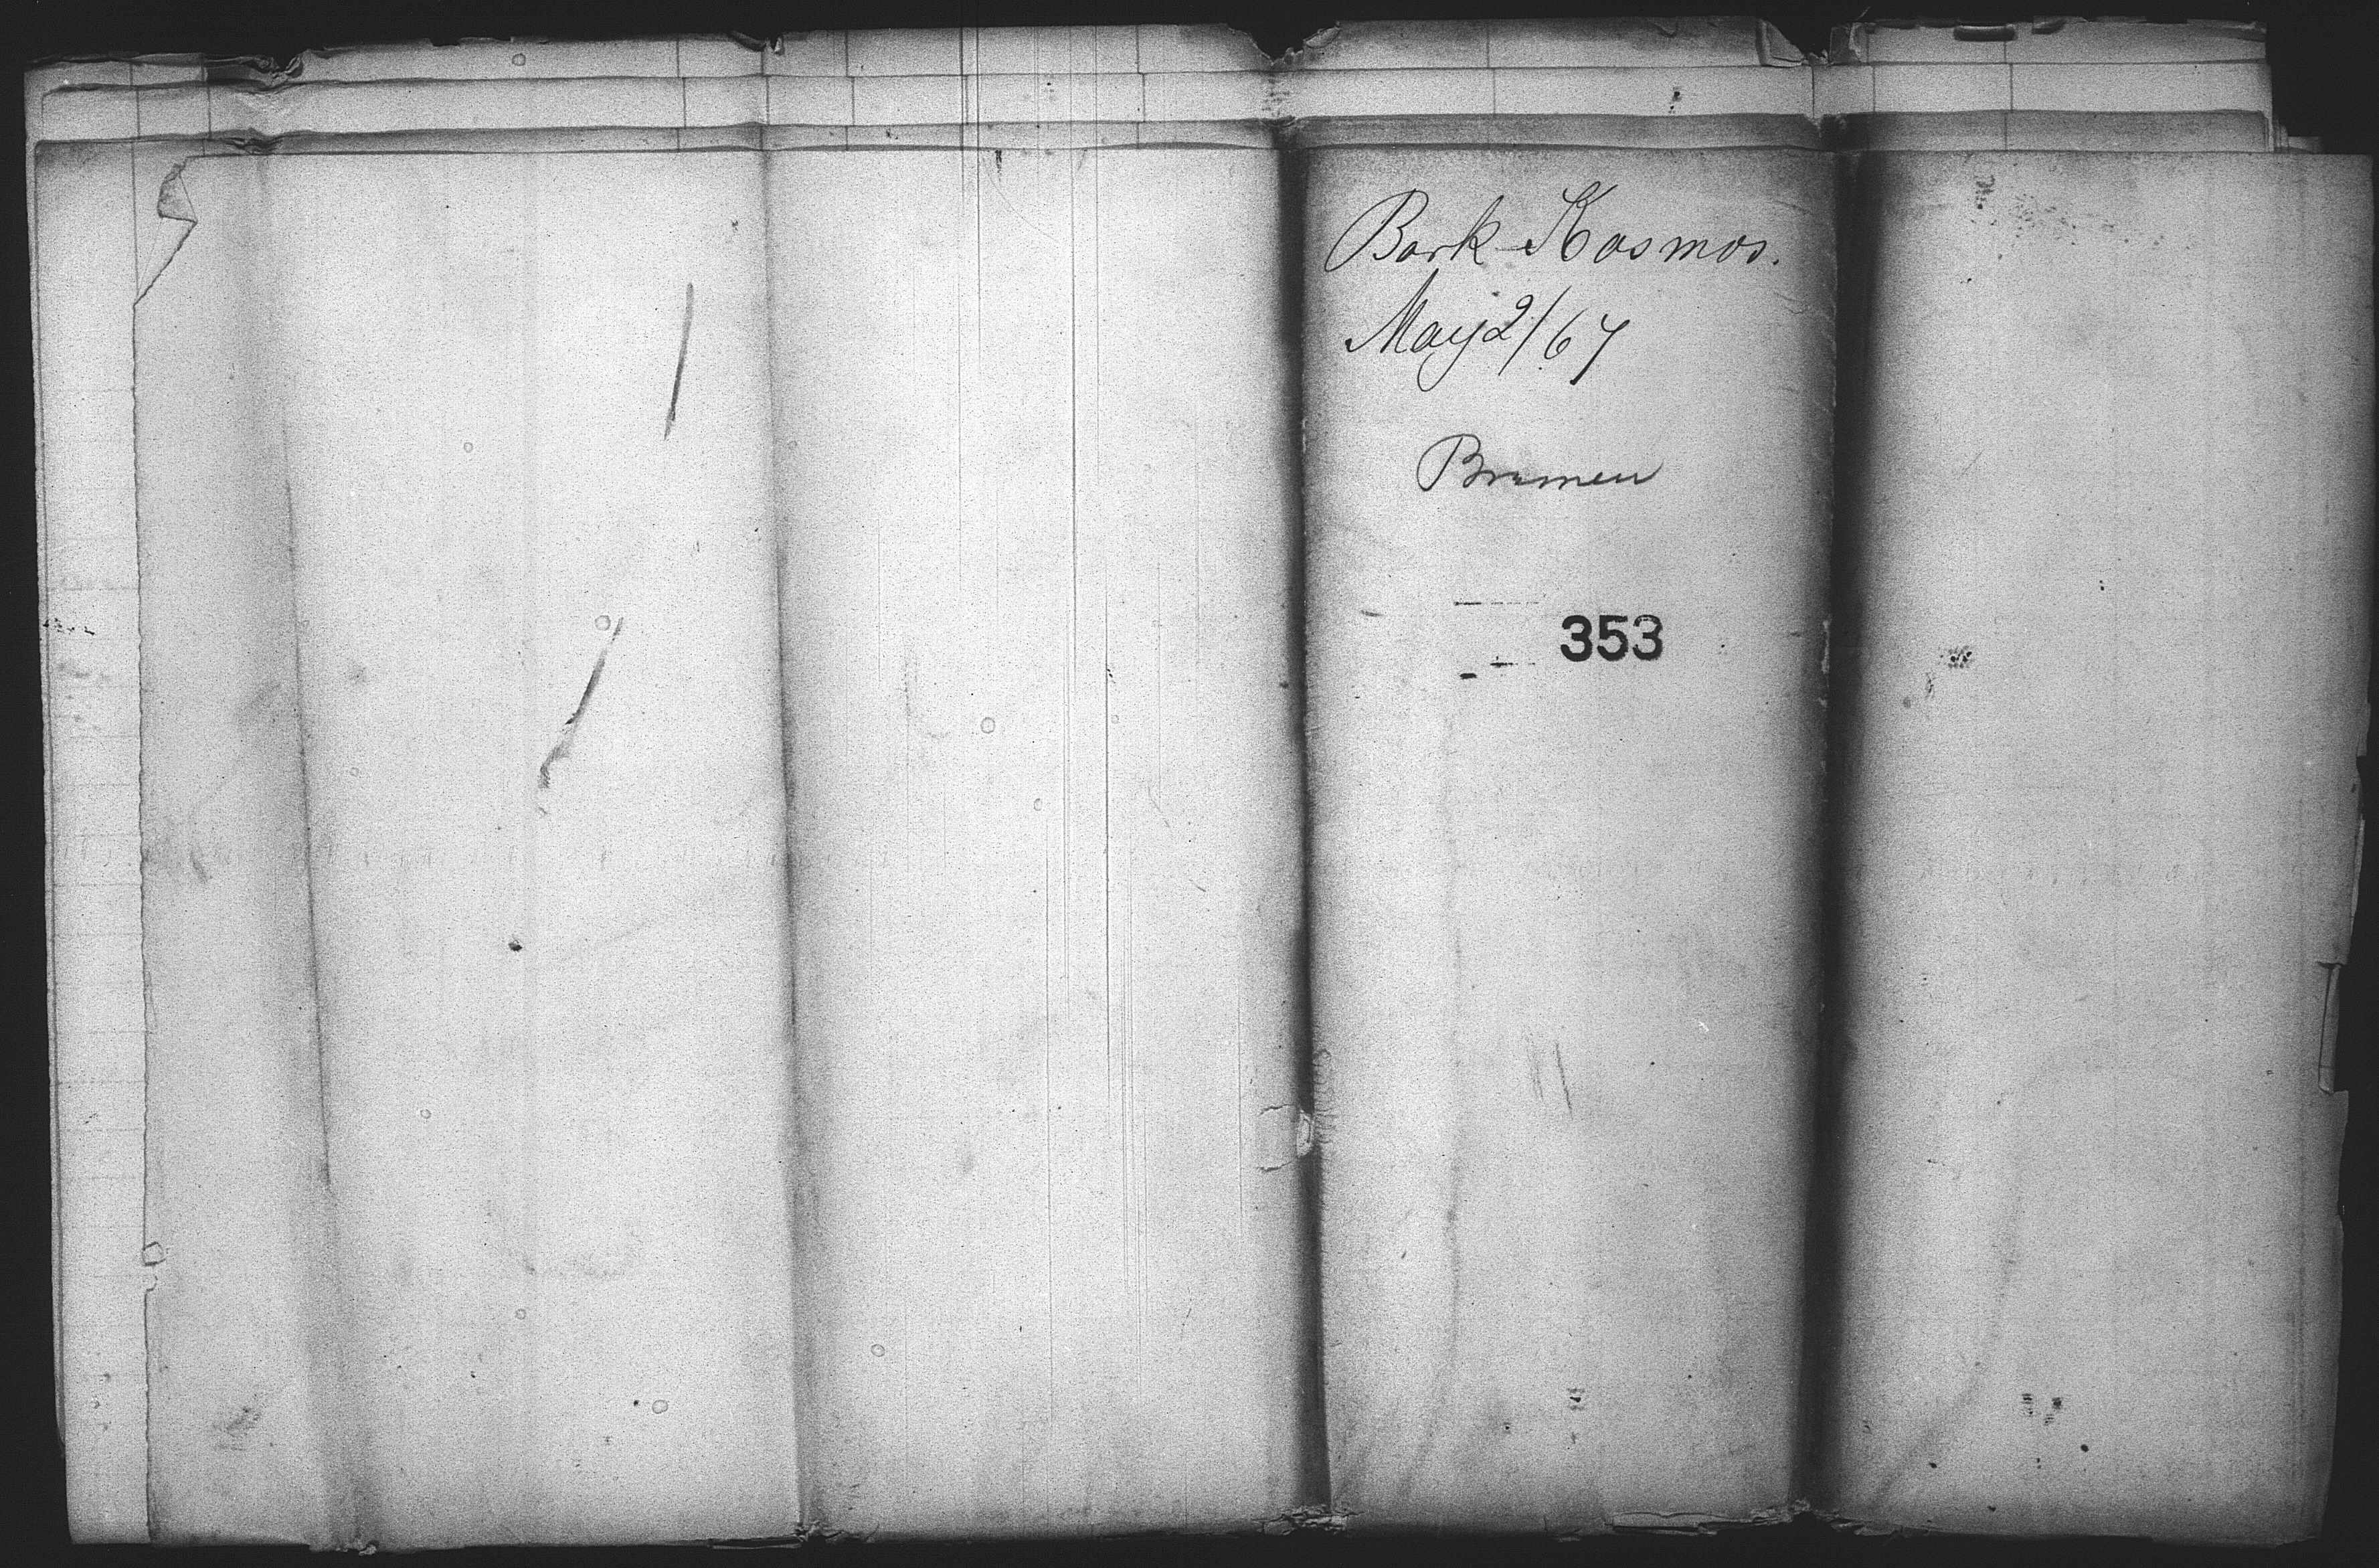 Bark Kosmos.
May 2/67
Bremen
353